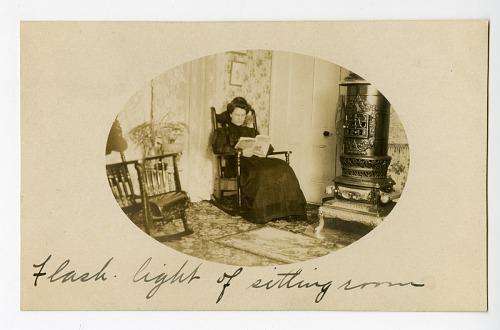 Flash. light of sitting room